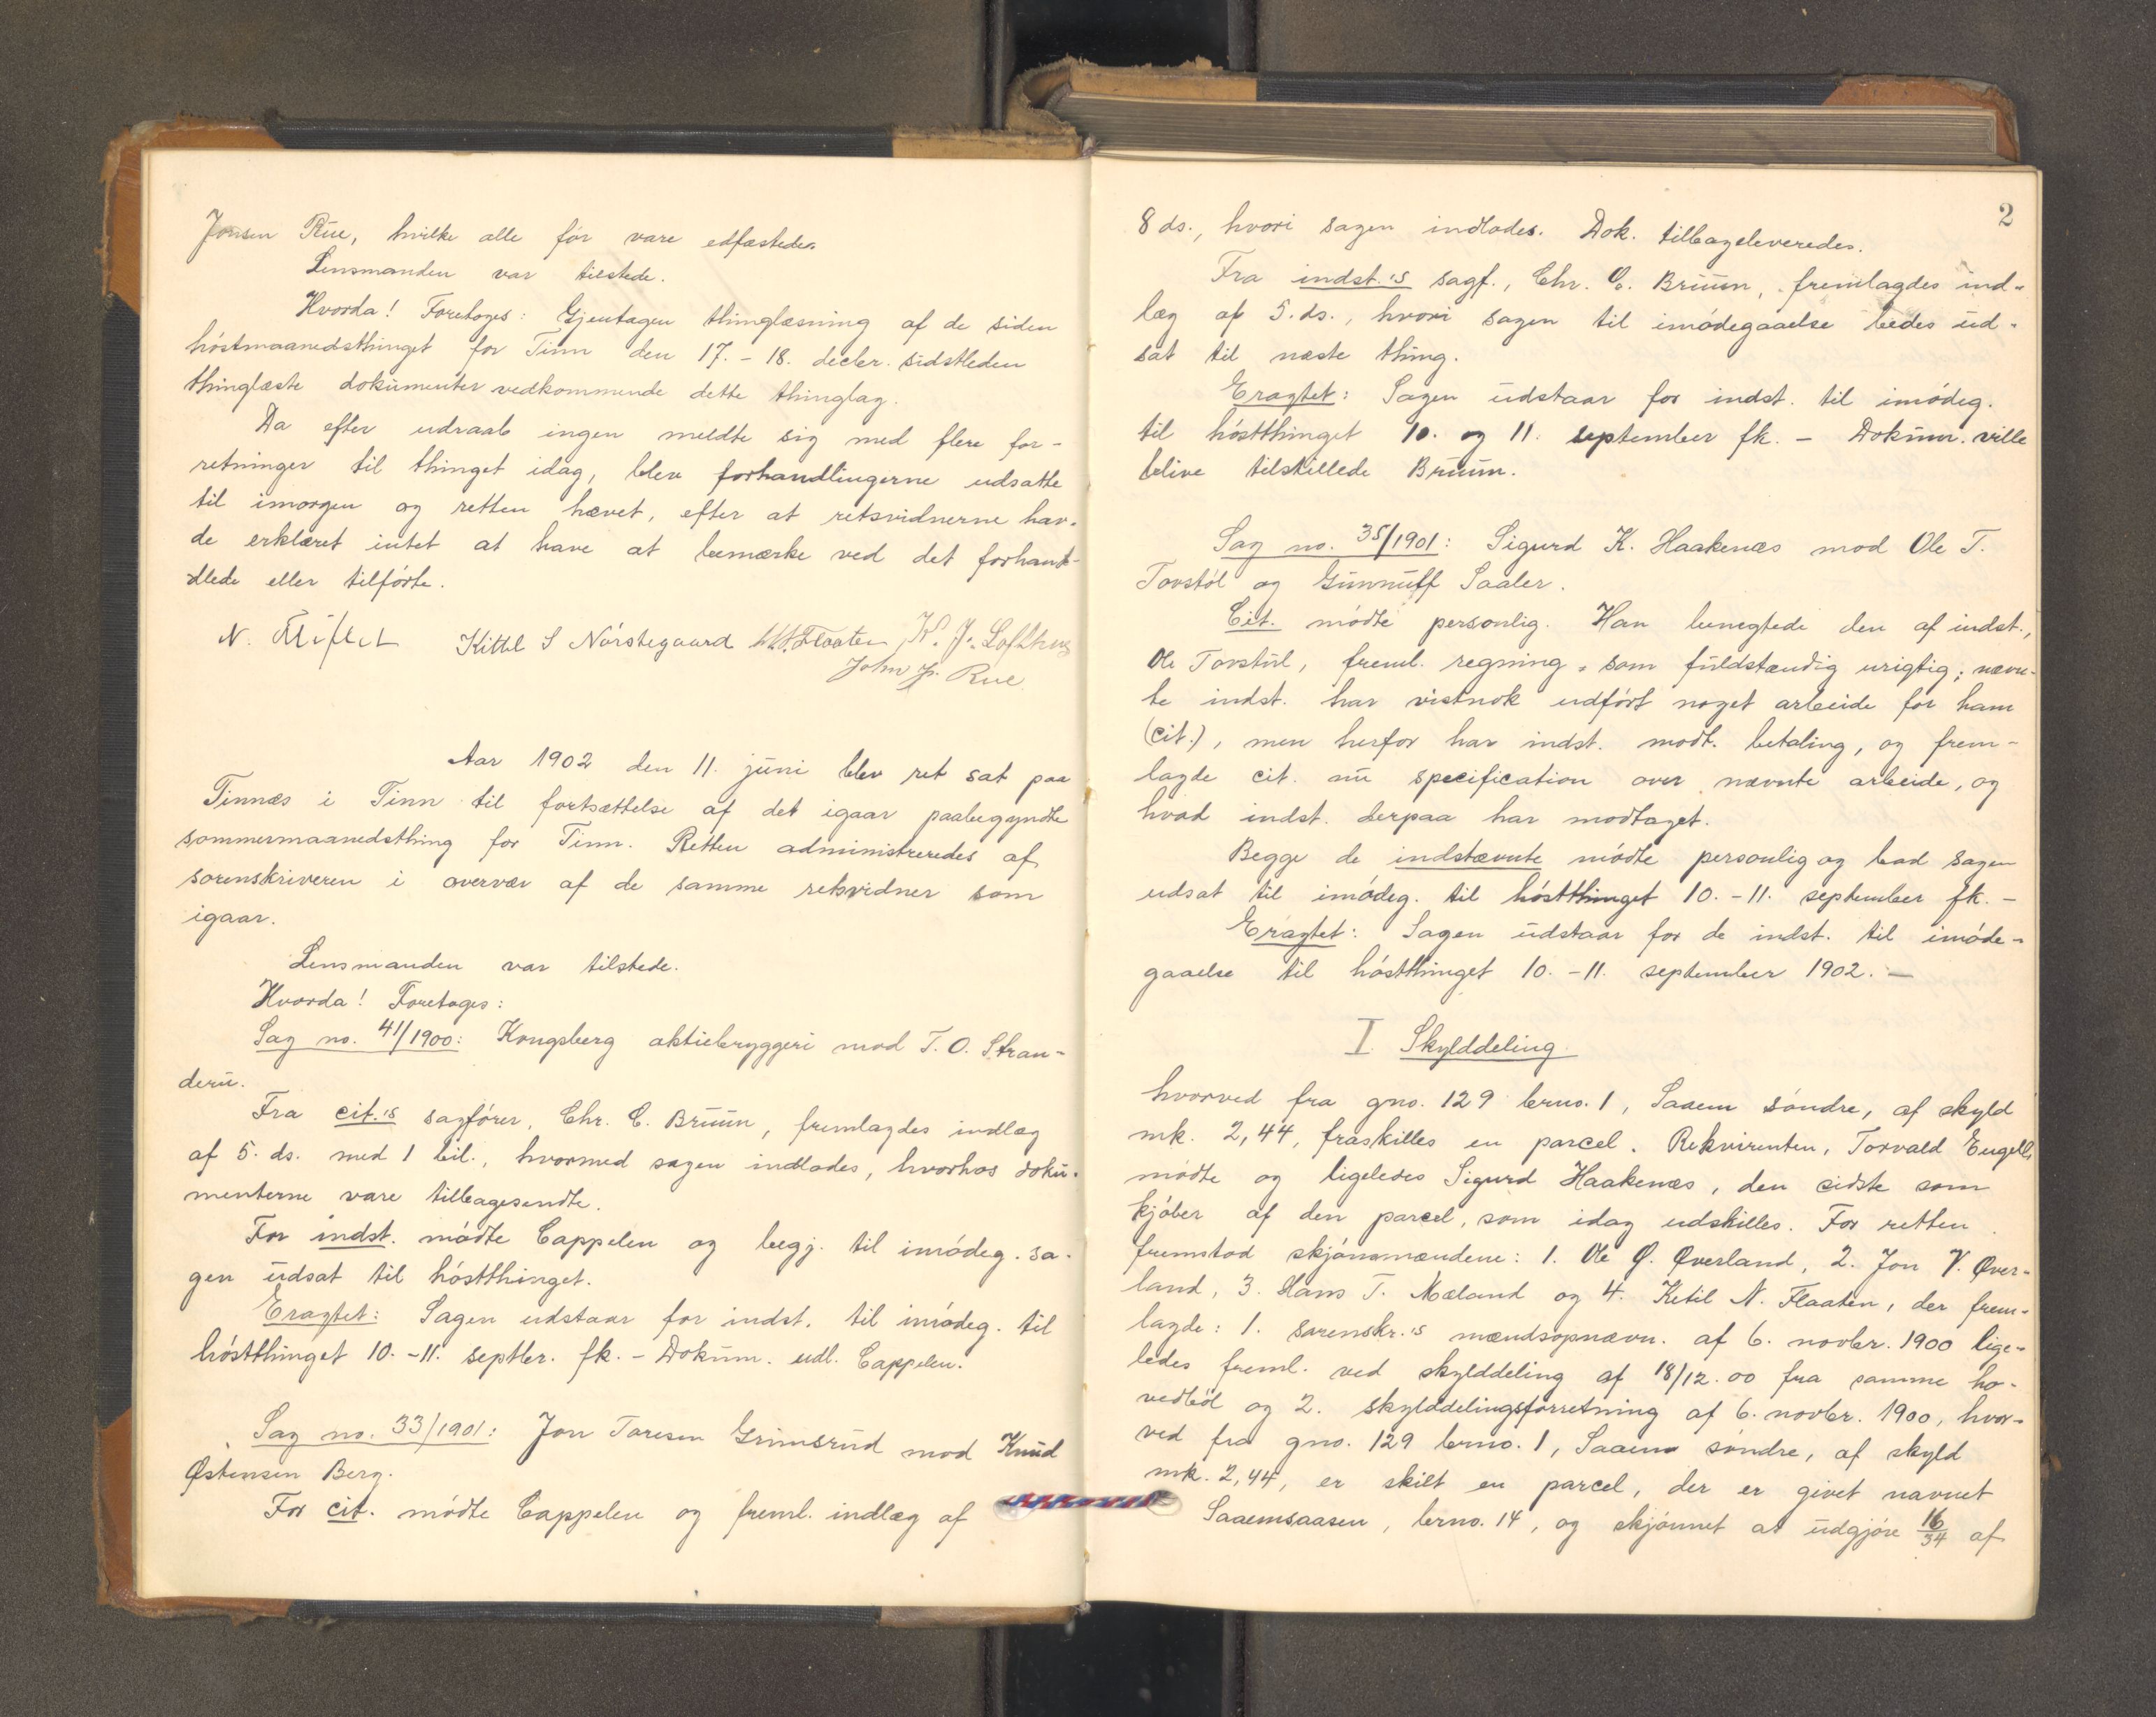 Jonsen Rue, hvilke alle før vare edfæstede.
Lensmanden var tilstede.
Hvorda! Foretages: Gjentagen thinglæsning af de siden
høstmaanedsthinget for Tinn den 17. - 18. decbr. sidstleden
thinglæste dokumenter vedkommende dette thinglag.
Da efter udraab ingen meldte sig med flere for-
retninger til thinget idag, blev forhandlingerne udsatte
til imorgen og retten hævet, efter at retsvidnerne hav-
de erklæret intet at have at bemærke ved det forhand-
dlede eller tilførte.
N. Kittel S Nørstegaard Flaaten K. J. Lofthus
John J. Rue
Aar 1902 den 11. juni blev ret sat paa
Tinnæs i Tinn til fortsættelse af det igaar paabegyndte
sommermaanedsthing for Tinn. Retten administreredes af
sorenskriveren i overvær af de samme retsvidner som
igaar.
Lensmanden var tilstede.
Hvorda! Foretages:
Sag no. 41/1900: Kongsberg aktiebryggeri mod T. O. Stran-
derü.
Fra cit.'s sagfører, Chr. C. Bruun, fremlagdes indlæg
af 5. ds. med 1 bil., hvormed sagen indlodes, hvorhos doku-
menterne vare tilbagesendte.
For indst. mødte Cappelen og begj. til imødeg. sa-
gen udsat til høstthinget.
Eragtet: Sagen udstaar for indst. til imødeg. til
høstthinget 10. -11. septbr. fk. - Dokum. udl. Cappelen.
Sag no. 33/1901: Jon Toresen Grimsrud mod Knud
Østensen Berg.
For cit. mødte Cappelen og freml. indlæg af
2
8 ds., hvori sagen indlodes. Dok. tilbageleveredes.
Fra indst.'s sagf., Chr. C. Bruun, fremlagdes ind-
læg af 5. ds., hvori sagen til imødegaaelse bedes ud-
sat til næste thing.
Eragtet: Sagen udstaar for indst. til imødeg.
til høstthinget 10. og 11. september fk. - Dokum. ville
blive tilstillede Bruun.
Sag no. 35/1901: Sigurd K. Haakenæs mod Ole T.
Tovstøl og Gunnuff Saaler.
Cit. mødte personlig. Han benegtede den af indst.,
Ole Tovstul, freml. regning, som fuldstændig urigtig; nævn-
te indst. har vistnok udført noget arbeide for ham
(cit.), men herfor har indst. modt. betaling, og frem-
lagde cit. nu specification over nævnte arbeide, og
hvad indst. derpaa har modtaget.
Begge de indstævnte mødte personlig og bad sagen
udsat til imødeg. til høstthinget 10. -11. september fk. -
Eragtet: Sagen udstaar for de indst. til imøde-
gaaelse til høstthinget 10. -11. september 1902. -
I Skylddeling
hvorved fra gno. 129 brno. 1, Saaem søndre, af skyld
mk. 2,44, fraskilles en parcel. Rekvirenten, Torvald
mødte og ligeledes Sigurd Haakenæs, den sidste som
kjøber af den parcel, som idag udskilles. For retten
fremstod skjønsmændene: 1. Ole G. Øverland, 2. Jon V. Øver-
land, 3. Hans T. Mæland og 4. Ketil N. Flaaten, der frem-
lagde: 1. sorenskr.'s mændsopnævn. af 6. novbr. 1900 lige-
ledes freml. ved skylddeling af 18/12.00 fra samme ho-
vedbøl og 2. skylddelingsforretning af 6. novbr. 1900, hvor-
ved fra gno. 129 brno. 1, Saaem søndre, af skyld
mk. 2,44, er skilt en parcel, der er givet navnet
Saaemsaasen, brno. 14, og skjønnet at udgjøre 16/34 af